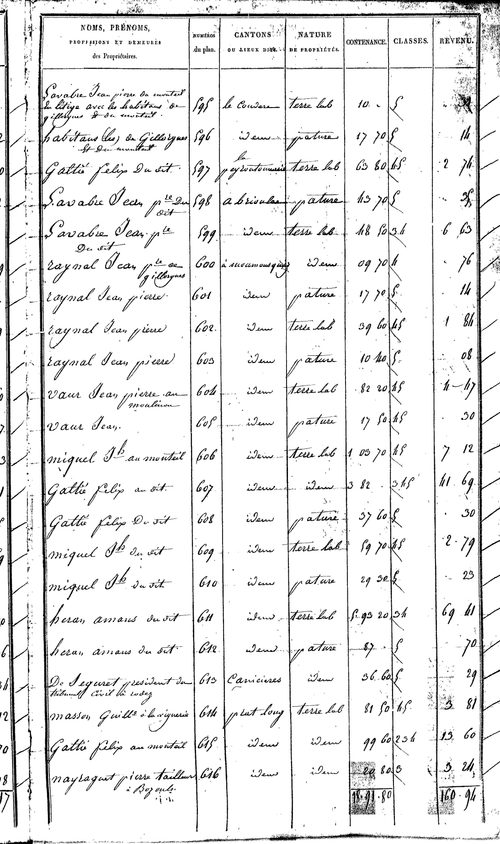 NOMS, PRÉNOMS, PROFESSIONS ET DEMEURES des Propriétaires. NUMÉROS du plan. CANTONS OU LIEUX DITS. NATURE DE PROPRIÉTÉS. CONTENANCE. CLASSES. REVENU.
Lavabre Jean pierre du monteil
en litige avec les habitans de
gillorgues & du monteil 595 la Couzere terre lab 10 5
habitans (les) de Gillorgues
& du monteil 596 idem pature 17 70 5 14
Gattié felix du dit 597 la
terre lab 63 80 45 2 74
Lavabre Jean pre du
dit 598 pature 43 70 5 35
Lavabre Jean pre
Du dit 599 idem terre lab 48 50 34 6 63
raynal Jean pre de
gillorgues 600 idem 09 70 4 76
raynal Jean pierre 601 idem pature 17 70 5 14
raynal Jean pierre 602 idem terre lab 39 60 45 1 84
raynal Jean pierre 603 idem pature 10 40 5 08
vaur Jean pierre au
moulinou 604 idem terre lab 82 20 45 4 47
vaur Jean 605 idem pature 17 50 45 30
miquel Jh au monteil 606 idem terre lab 1 03 70 45 7 12
Gattié felix au dit 607 idem idem 3 82 345 41 69
Gattié felix Du dit 608 idem pature 37 60 5 30
miquel Jh du dit 609 idem terre lab 59 70 45 2 79
miquel Jh du dit 610 idem pature 29 30 5 23
heran amans du dit 611 idem terre lab 5 93 20 34 69 41
heran amans du dit 612 idem pature 87 5 70
De Seguret president du
tribunal Civil de rodez 613 Canicieres idem 36 60 5 29
masson Guille à la viguerie 614 prat long terre lab 81 50 45 3 81
Gattié felix au monteil 615 idem idem 99 60 234 13 60
nayraguet pierre tailleur
à Bozouls 616 idem idem 20 80 3 3 24
18 91 80 160 94